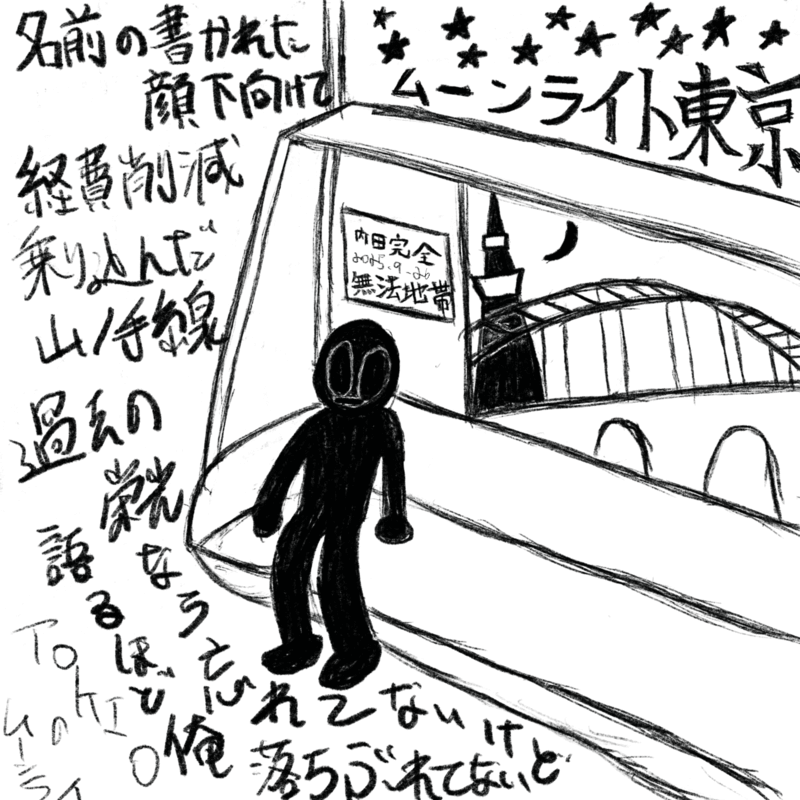 ムーンライト東京
名前の書かれた
顔下向けて
経費削減
乗り込んだ
山ノ手線
内田完全
2025.9.20
無法地帯
過去の
栄光
なら忘れてないけど
語るほど
俺落ちぶれてないど
TOKIO
のムーンライ